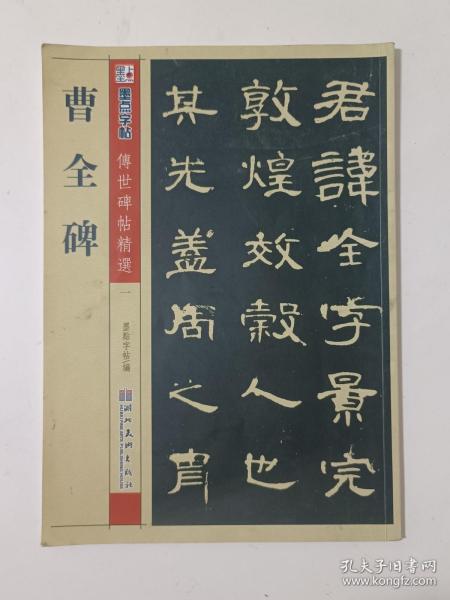 曹全碑
墨点
墨点字帖
傳世碑帖精選
一
墨點字帖/編
湖北美術出版社
HUBEI FINE ARTS PUBLISHING HOUSE
君諱全字景完
敦煌效穀人也
其先蓋周之胄
孔夫子旧书网
www.kongfz.com